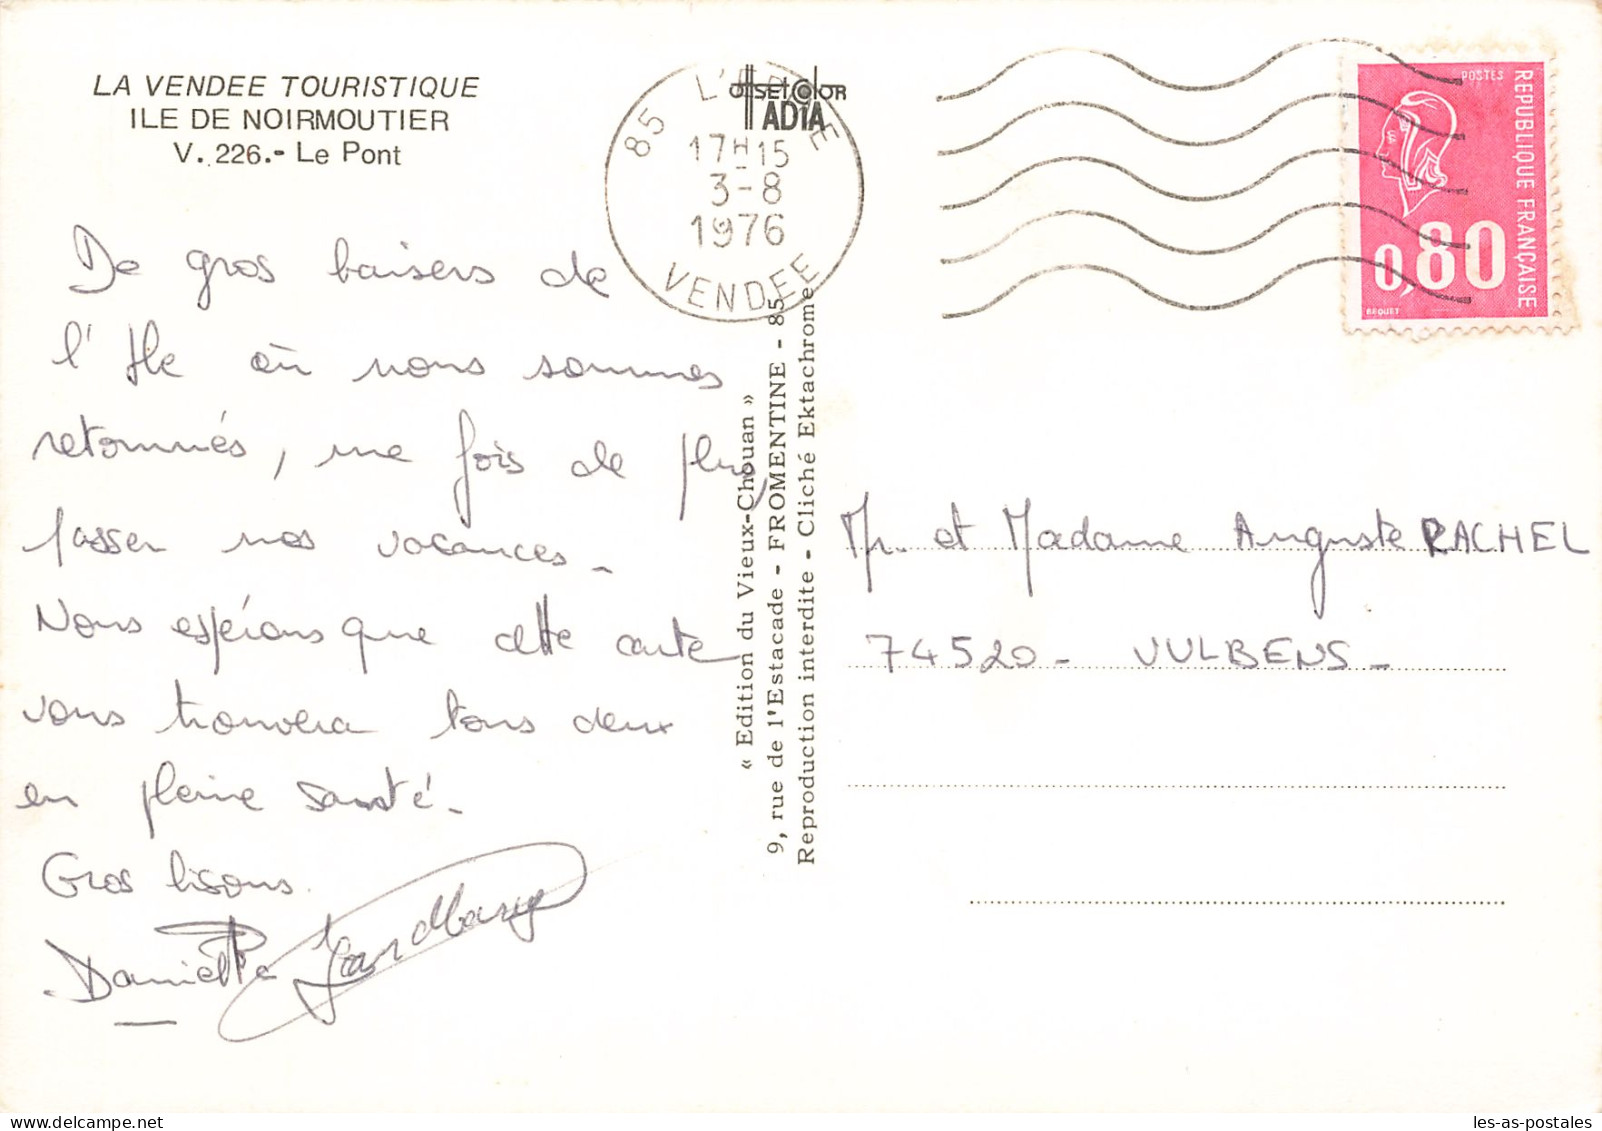 LA VENDEE TOURISTIQUE
ILE DE NOIRMOUTIER
V. 226.- Le Pont
De gros baisers de
l'Ile où nous sommes
retournés, une fois de plus,
passer nos vacances -
Nous espérons que cette carte
vous trouvera tous deux
en pleine santé -
Gros bisous.
Danielle Jean Mary
85 L'EPINE
17H15
3-8
1976
VENDEE
OFFSET COLOR
ADIA
« Edition du Vieux-Chouan »
9, rue de l'Estacade - FROMENTINE - 85
Reproduction interdite - Cliché Ektachrome
POSTES
REPUBLIQUE FRANÇAISE
0,80
BEQUET
Mr. et Madame Auguste RACHEL
74520 - VULBENS -
les-as-postales